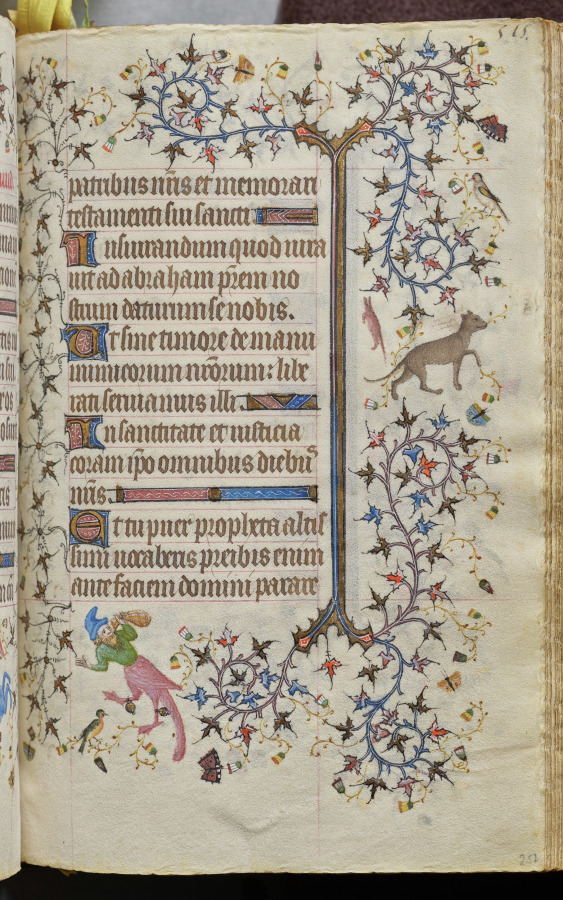 515.
patribus nr̄is et memorari
testamenti sui sancti
Iusiurandum quod iura
uit ad abraham pr̄em no
strum daturum se nobis.
Ut sine timore de manu
inimicorum nr̄orum: libe
rati seruiamus illi
In sanctitate et iusticia
coram ip̄o omnibus diebus
nr̄is.
Et tu puer propheta altis
simi uocaberis preibis enim
ante faciem domini parare
257